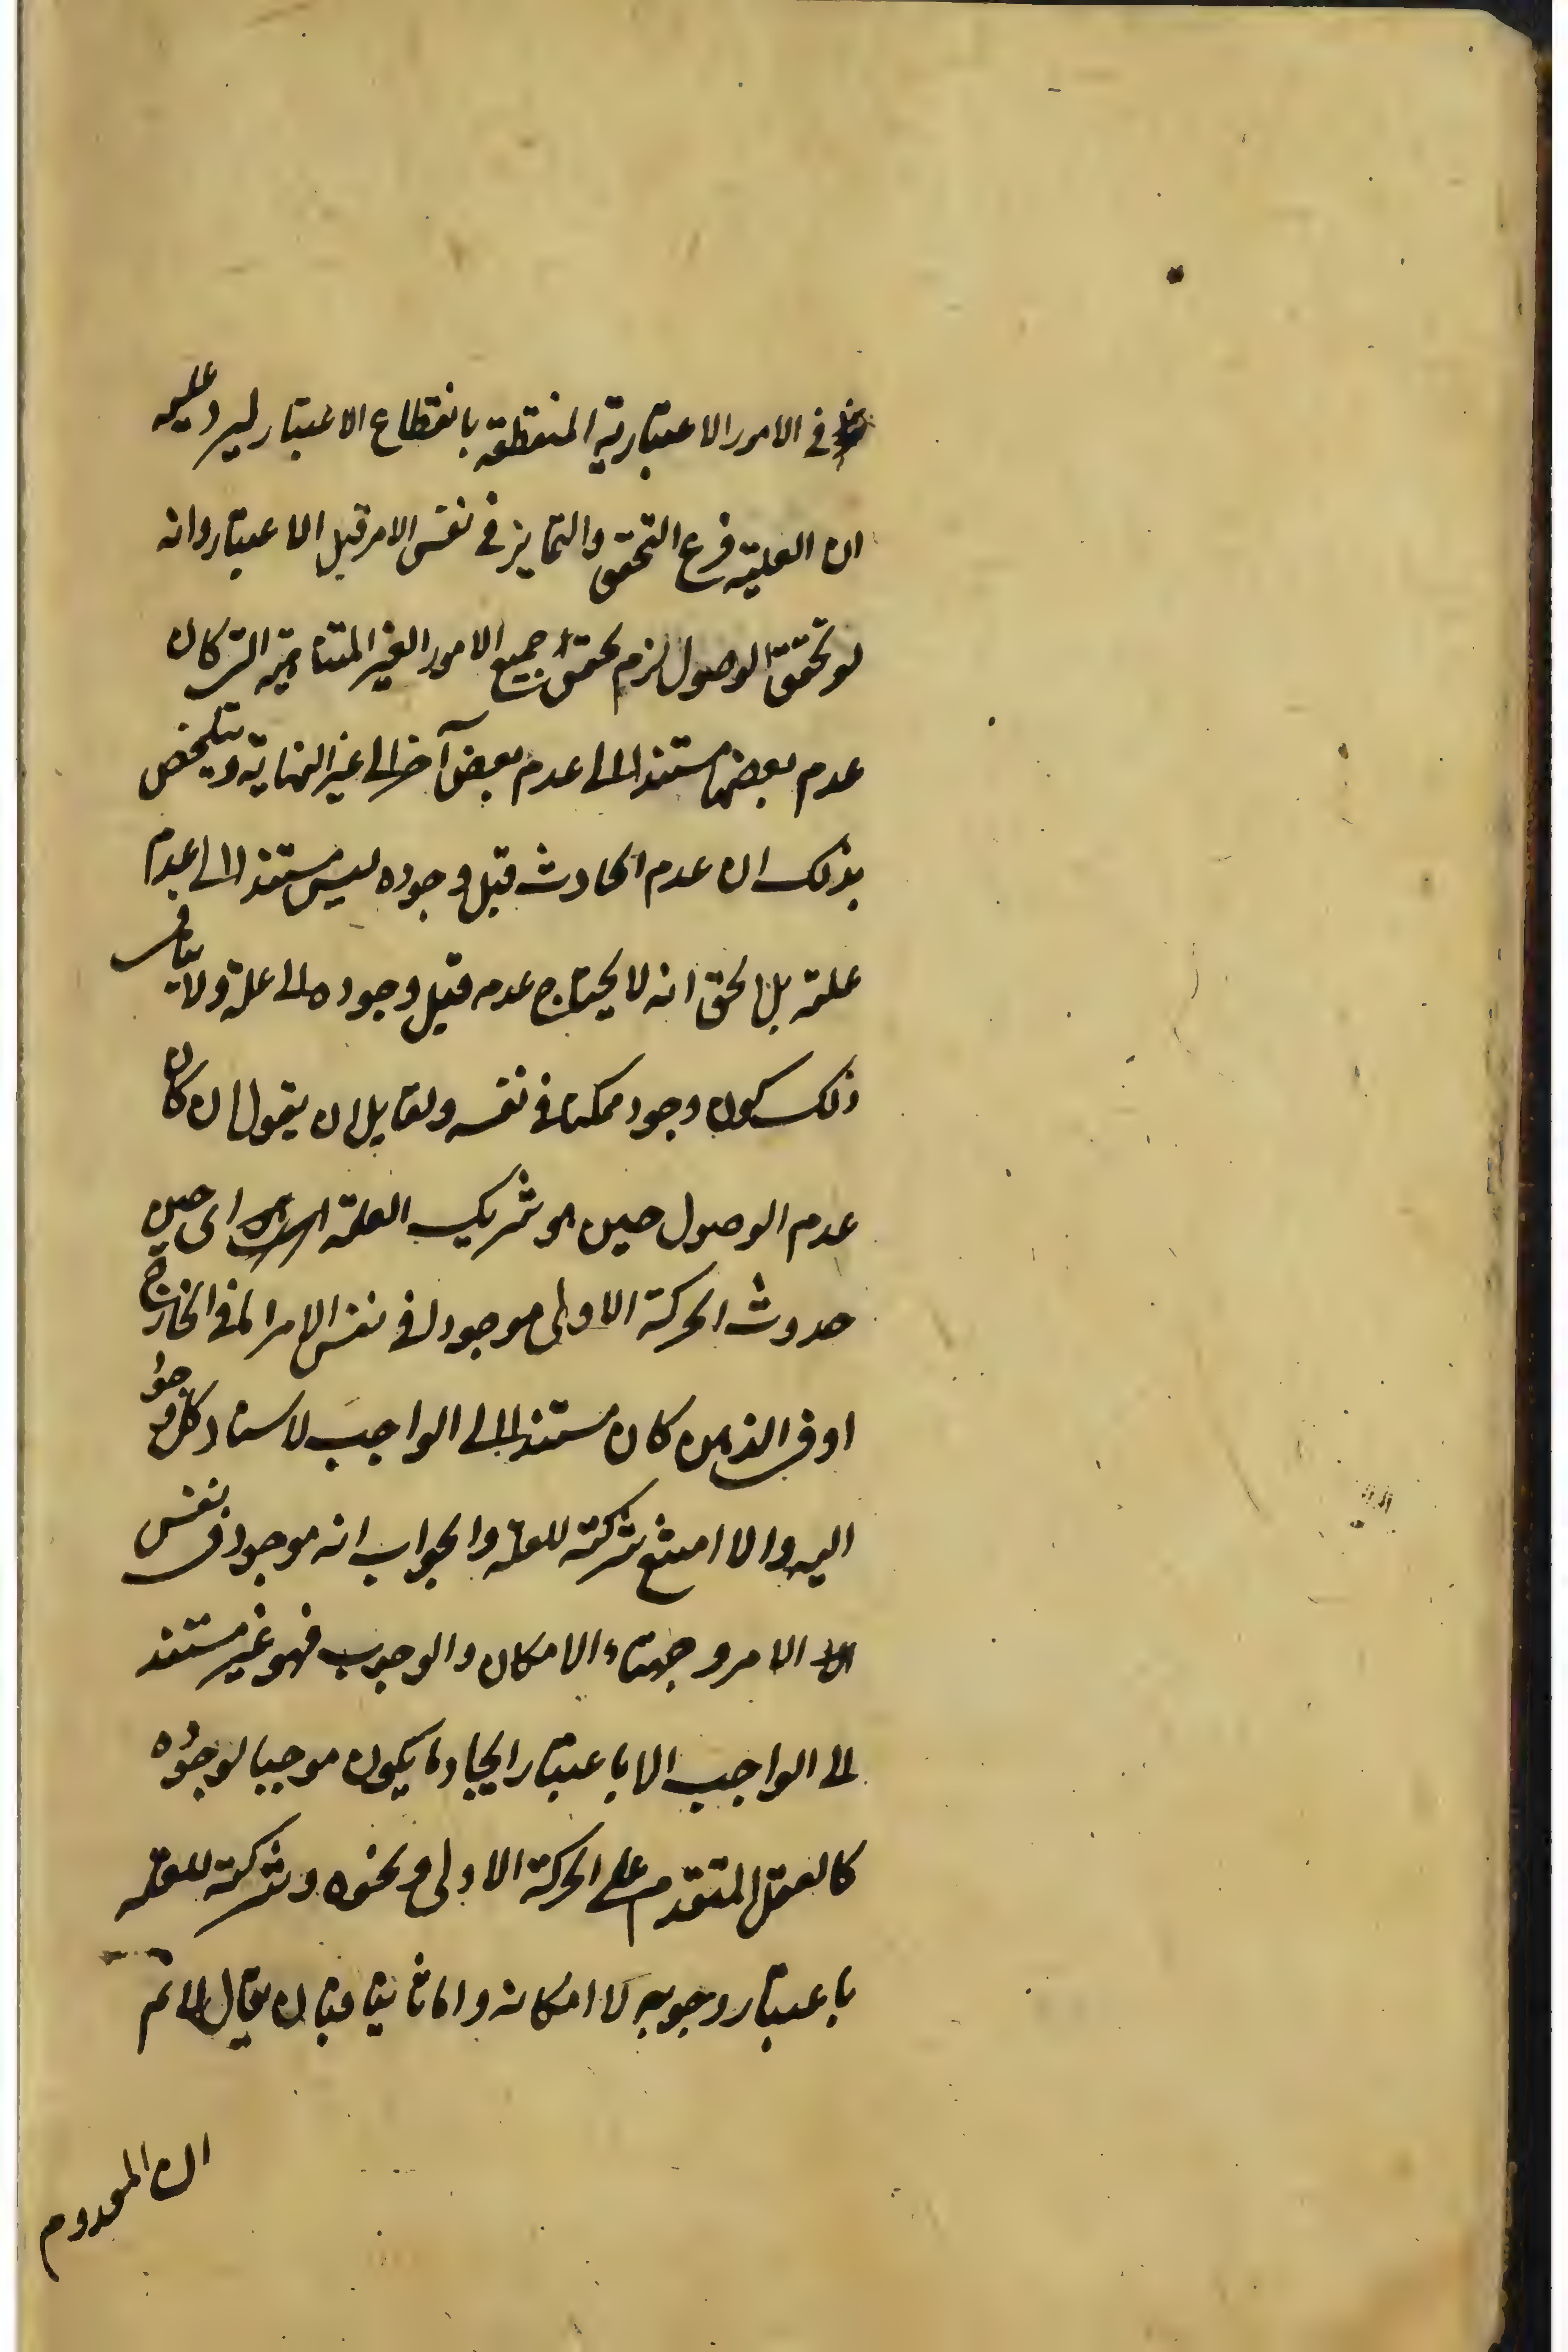 في الامور الاعتبارية المنقطعة بانقطاع الاعتبار ليرد عليه
ان العلية فرع التحقق والتمايز في نفس الامر قبل الاعتبار وانه
لو تحقق الوصول لزم تحقق جميع الامور الغير المتناهية التي كان
عدم بعضها مستندا الى عدم بعض آخر الى غير النهاية ويتلخص
بذلك ان عدم الحادث قبل وجوده ليس مستندا الى عدم
علته بل الحق انه لا يحتاج عدمه قبل وجوده الى علة ولا ينافي
ذلك كون وجوده ممكنا في نفسه ولقايل ان يقول ان كان
عدم الوصول حين هو شريك العلة اى حين
حدوث الحركة الاولى موجودا في نفس الامر اما في الخارج
او في الذهن كان مستندا الى الواجب لاستناد كل موجود
اليه والا امتنع شركته للعلة والجواب انه موجود في نفس
الامر وجهتاه الامكان والوجوب فهو غير مستند
الى الواجب الا باعتبار ايجاد ما يكون موجبا لوجوده
كالعقل المتقدم على الحركة الاولى ونحوه وشركته للعلة
باعتبار وجوبه لا امكانه واما ثانيا فبان يقال لا نم
ان المعدوم